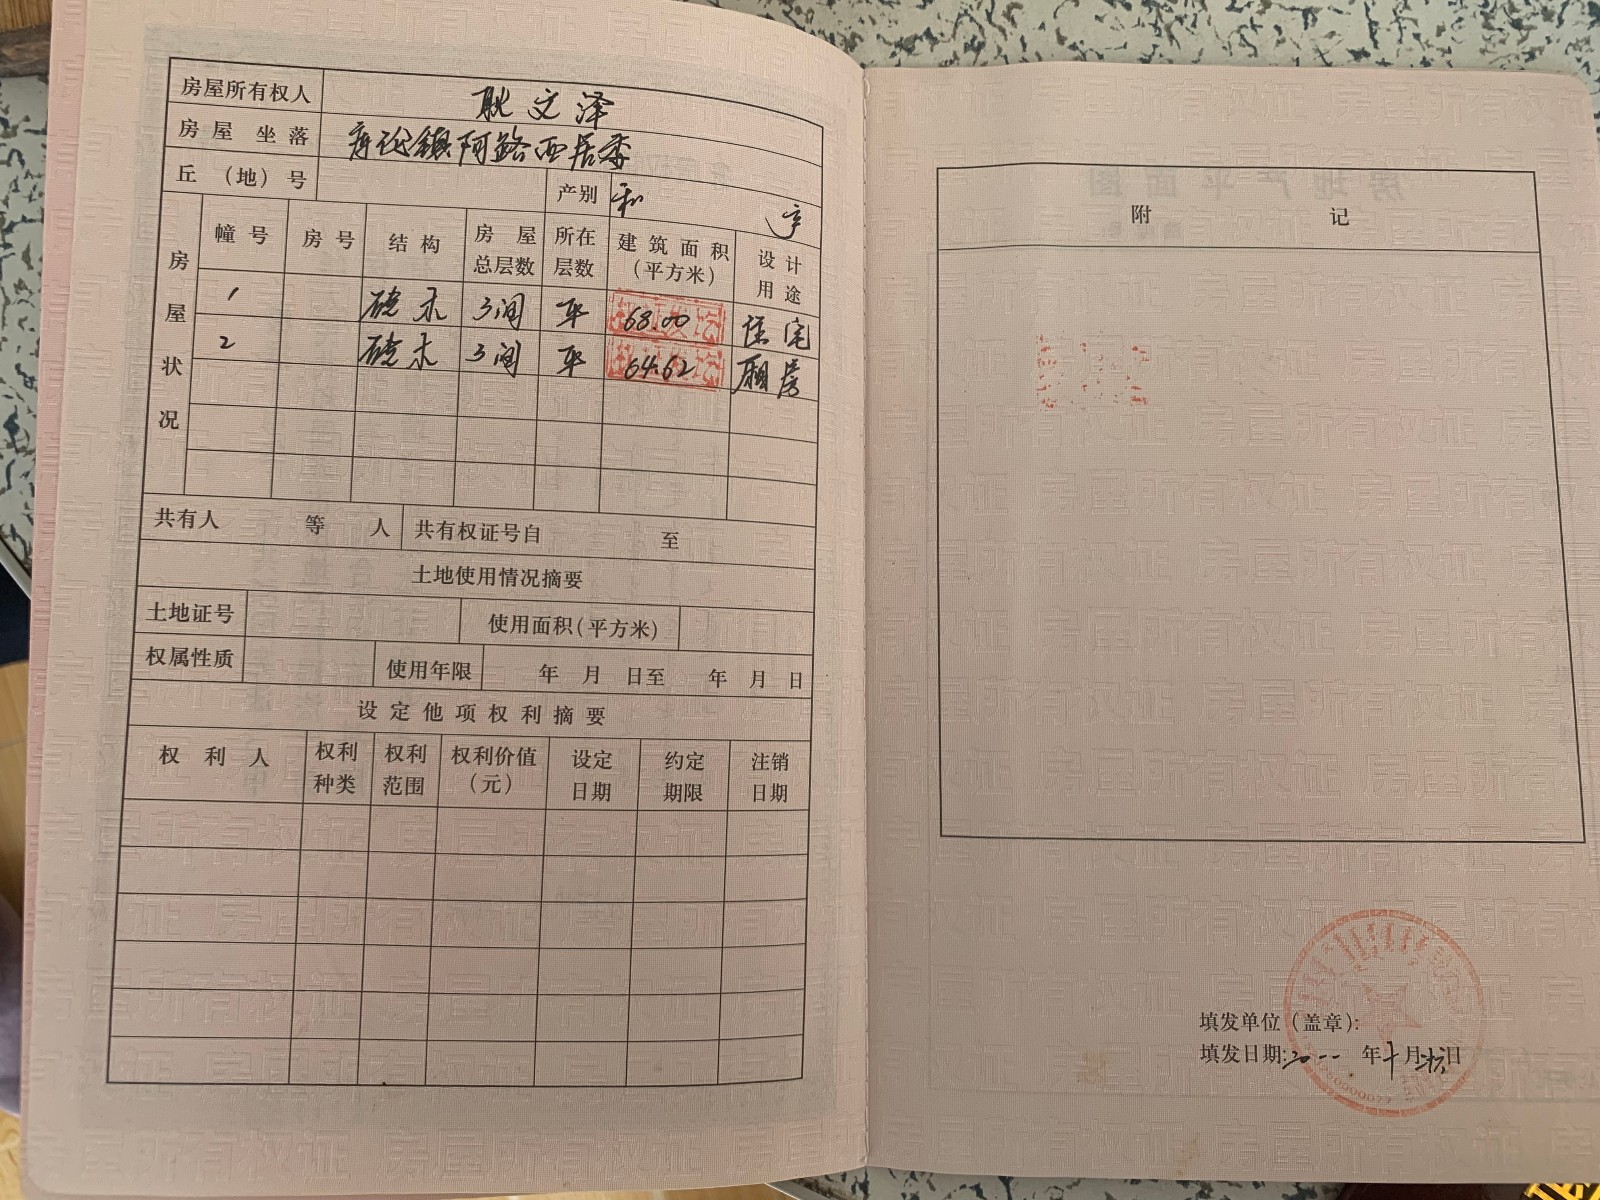 房屋所有权人 耿文泽
房屋坐落 库伦镇阿路西居委
丘（地）号 产别 私 产
房屋状况 幢号 房号 结构 房屋总层数 所在层数 建筑面积（平方米） 设计用途
1 砖木 3间 平 68.00 住宅
2 砖木 3间 平 64.62 厢房
共有人 等 人 共有权证号自 至
土地使用情况摘要
土地证号 使用面积(平方米)
权属性质 使用年限 年 月 日至 年 月 日
设定他项权利摘要
权利人 权利种类 权利范围 权利价值（元） 设定日期 约定期限 注销日期
附 记
填发单位（盖章）:
填发日期:二〇一一 年十月 日